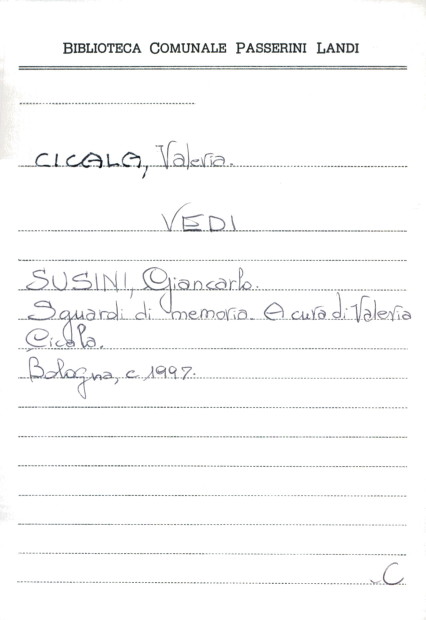 BIBLIOTECA COMUNALE PASSERINI LANDI
CICALA, Valeria.
VEDI
SUSINI, Giancarlo.
Sguardi di memoria. A cura di Valeria
Cicala.
Bologna, c. 1997.
C